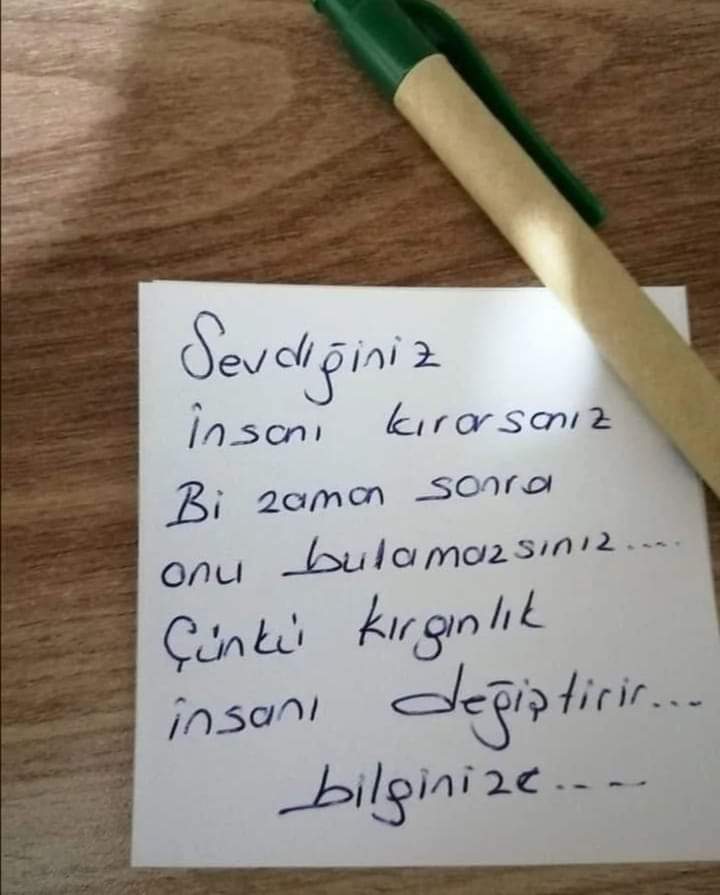 Sevdiğiniz
insanı kırarsanız
Bi zaman sonra
onu bulamazsınız....
Çünkü kırgınlık
insanı değiştirir...
bilginize....